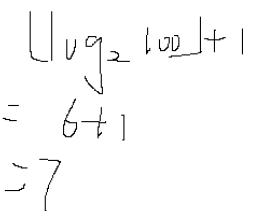 ⌊log₂ 100⌋+1
= 6+1
=7